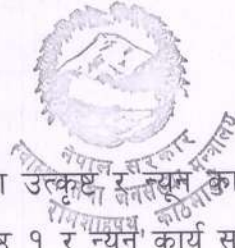 नेपाल सरकार
स्वास्थ्य तथा जनसंख्या मन्त्रालय
रामशाहपथ काठमाडौं
उत्कृष्ट र न्यून
१ र न्यून कार्य